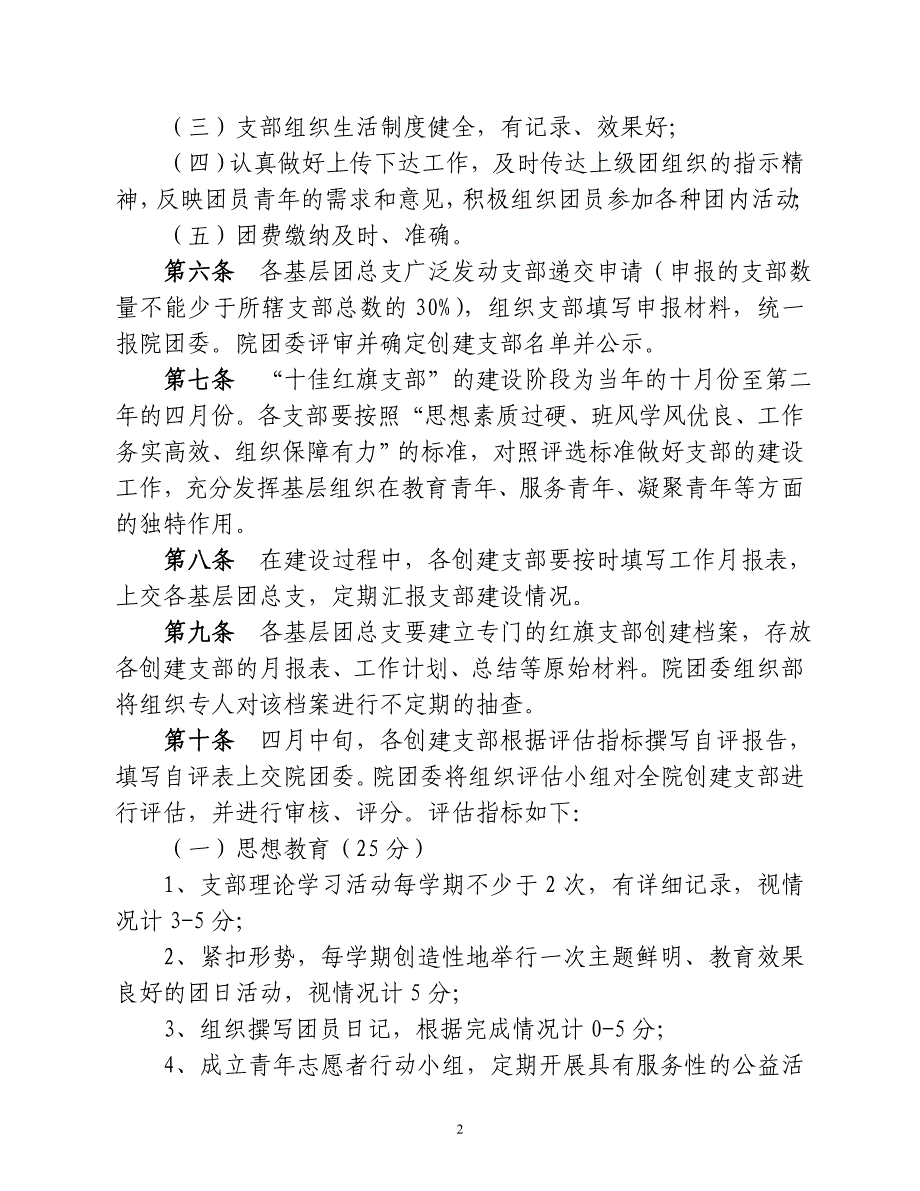 （三）支部组织生活制度健全，有记录、效果好；
（四）认真做好上传下达工作，及时传达上级团组织的指示精
神，反映团员青年的需求和意见，积极组织团员参加各种团内活动；
（五）团费缴纳及时、准确。
第六条　各基层团总支广泛发动支部递交申请（申报的支部数
量不能少于所辖支部总数的 30%），组织支部填写申报材料，统一
报院团委。院团委评审并确定创建支部名单并公示。
第七条　“十佳红旗支部”的建设阶段为当年的十月份至第二
年的四月份。各支部要按照“思想素质过硬、班风学风优良、工作
务实高效、组织保障有力”的标准，对照评选标准做好支部的建设
工作，充分发挥基层组织在教育青年、服务青年、凝聚青年等方面
的独特作用。
第八条　在建设过程中，各创建支部要按时填写工作月报表，
上交各基层团总支，定期汇报支部建设情况。
第九条　各基层团总支要建立专门的红旗支部创建档案，存放
各创建支部的月报表、工作计划、总结等原始材料。院团委组织部
将组织专人对该档案进行不定期的抽查。
第十条　四月中旬，各创建支部根据评估指标撰写自评报告，
填写自评表上交院团委。院团委将组织评估小组对全院创建支部进
行评估，并进行审核、评分。评估指标如下：
（一）思想教育（25 分）
1、支部理论学习活动每学期不少于 2 次，有详细记录，视情
况计 3-5 分；
2、紧扣形势，每学期创造性地举行一次主题鲜明、教育效果
良好的团日活动，视情况计 5 分；
3、组织撰写团员日记，根据完成情况计 0-5 分；
4、成立青年志愿者行动小组，定期开展具有服务性的公益活
2